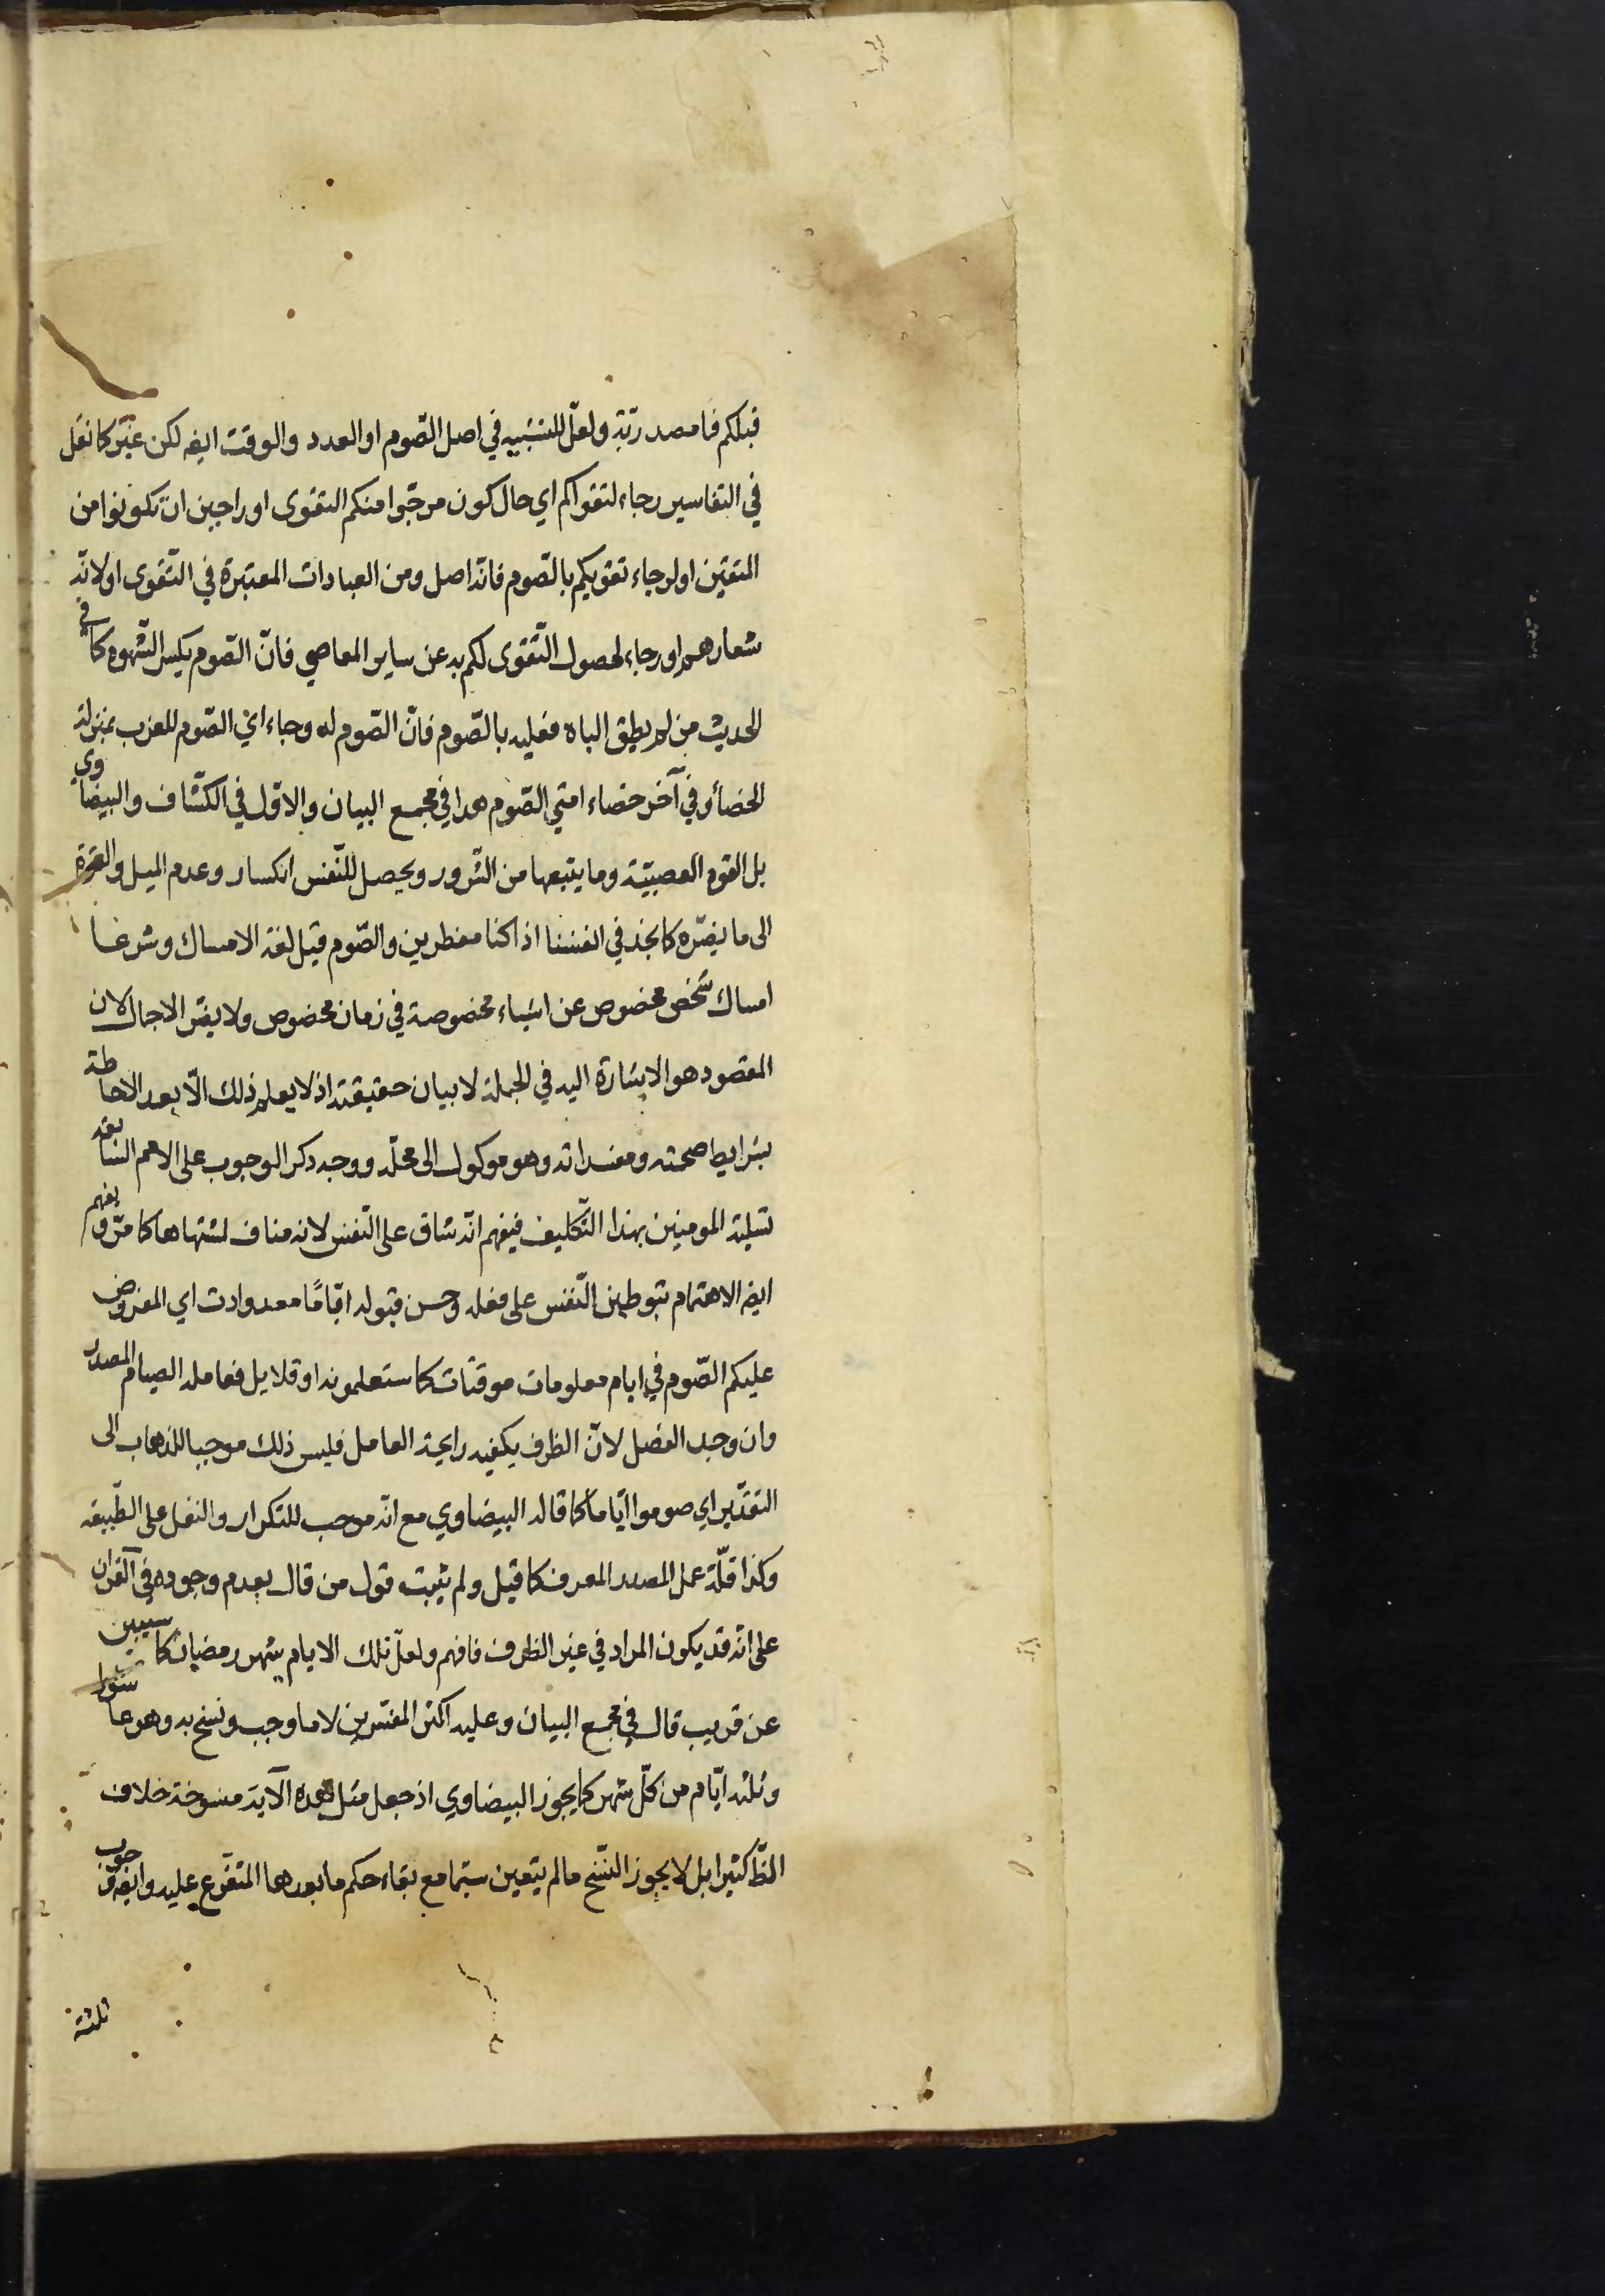 قبلكم فما مصدرية ولعل التشبيه في اصل الصوم او العدد والوقت ايضه لكن غير كما نقل
في التفاسير رجاء لتقواكم اي حال كون مرجوا منكم التقوى او راجين ان تكونوا من
المتقين او لرجاء تقويكم بالصوم فانه اصل ومن العبادات المعتبرة في التقوى او لانه
شعارهم او رجاء لحصول التقوى لكم به عن ساير المعاصي فانّ الصوم يكسر الشهوه كما في
الحديث من لم يطق الباه فعليه بالصوم فانّ الصوم له وجاء اي الصوم للعزب بمنزلة
الخصاء وفي آخر خصاء امتي الصوم هذا في مجمع البيان والاول في الكشاف والبيضاوي
بل القوه العصبيّة وما يتبعها من الشرور ويحصل للنّفس انكسار وعدم الميل والقوة
الى ما يضرّه كما نجد في انفسنا اذا كنا مفطرين والصّوم قيل لغة الامساك وشرعا
امساك شخص مخصوص عن اشياء مخصوصة في زمان مخصوص ولا يضر الاجمال لان
المقصود هو الاشارة اليه في الجملة لا بيان حقيقته اذ لا يعلم ذلك الّا بعد الاحاطة
بشرايط صحته ومفسداته وهو موكول الى محلّه ووجه ذكر الوجوب على الامم السابقة
تسلية المومنين بهذا التّكليف فيفهم انّه شاق على النّفس لانه مناف لشتهاها كما مرّ ويفهم
ايضه الاهتمام بتوطين النّفس على فعله وحسن قبوله ايّامًا معدودات اي المفروض
عليكم الصّوم في ايام معلومات موقتات كما ستعلمونه او قلايل فعامله الصيام المصدر
وان وجد الفصل لانّ الظرف يكفيه رايحة العامل فليس ذلك موجبا للذهاب الى
التقدّير اي صوموا ايّاما كما قاله البيضاوي مع انّه موجب للتكرار والنقل على الطّبيعه
وكذا قلّة عمل المصدر المعرف كما قيل ولم يثبت قول من قال بعدم وجوده في القران
على انّه قد يكون المراد في غير الظرف فافهم ولعلّ تلك الايام شهر رمضان كما سيبين
عن قريب قال في مجمع البيان وعليه اكثر المفسرين لا ما وجب ونسخ به وهو عاشورا
وثلثه ايّام من كلّ شهر كما يجوز البيضاوي اذ جعل مثل هذه الآية منسوخة خلاف
الظّ كثيرا بل لا يجوز النّسخ ما لم يتعين سيّما مع بقاء حكم ما بعدها المتفرّع عليه وايضه وجوب
ثلثة